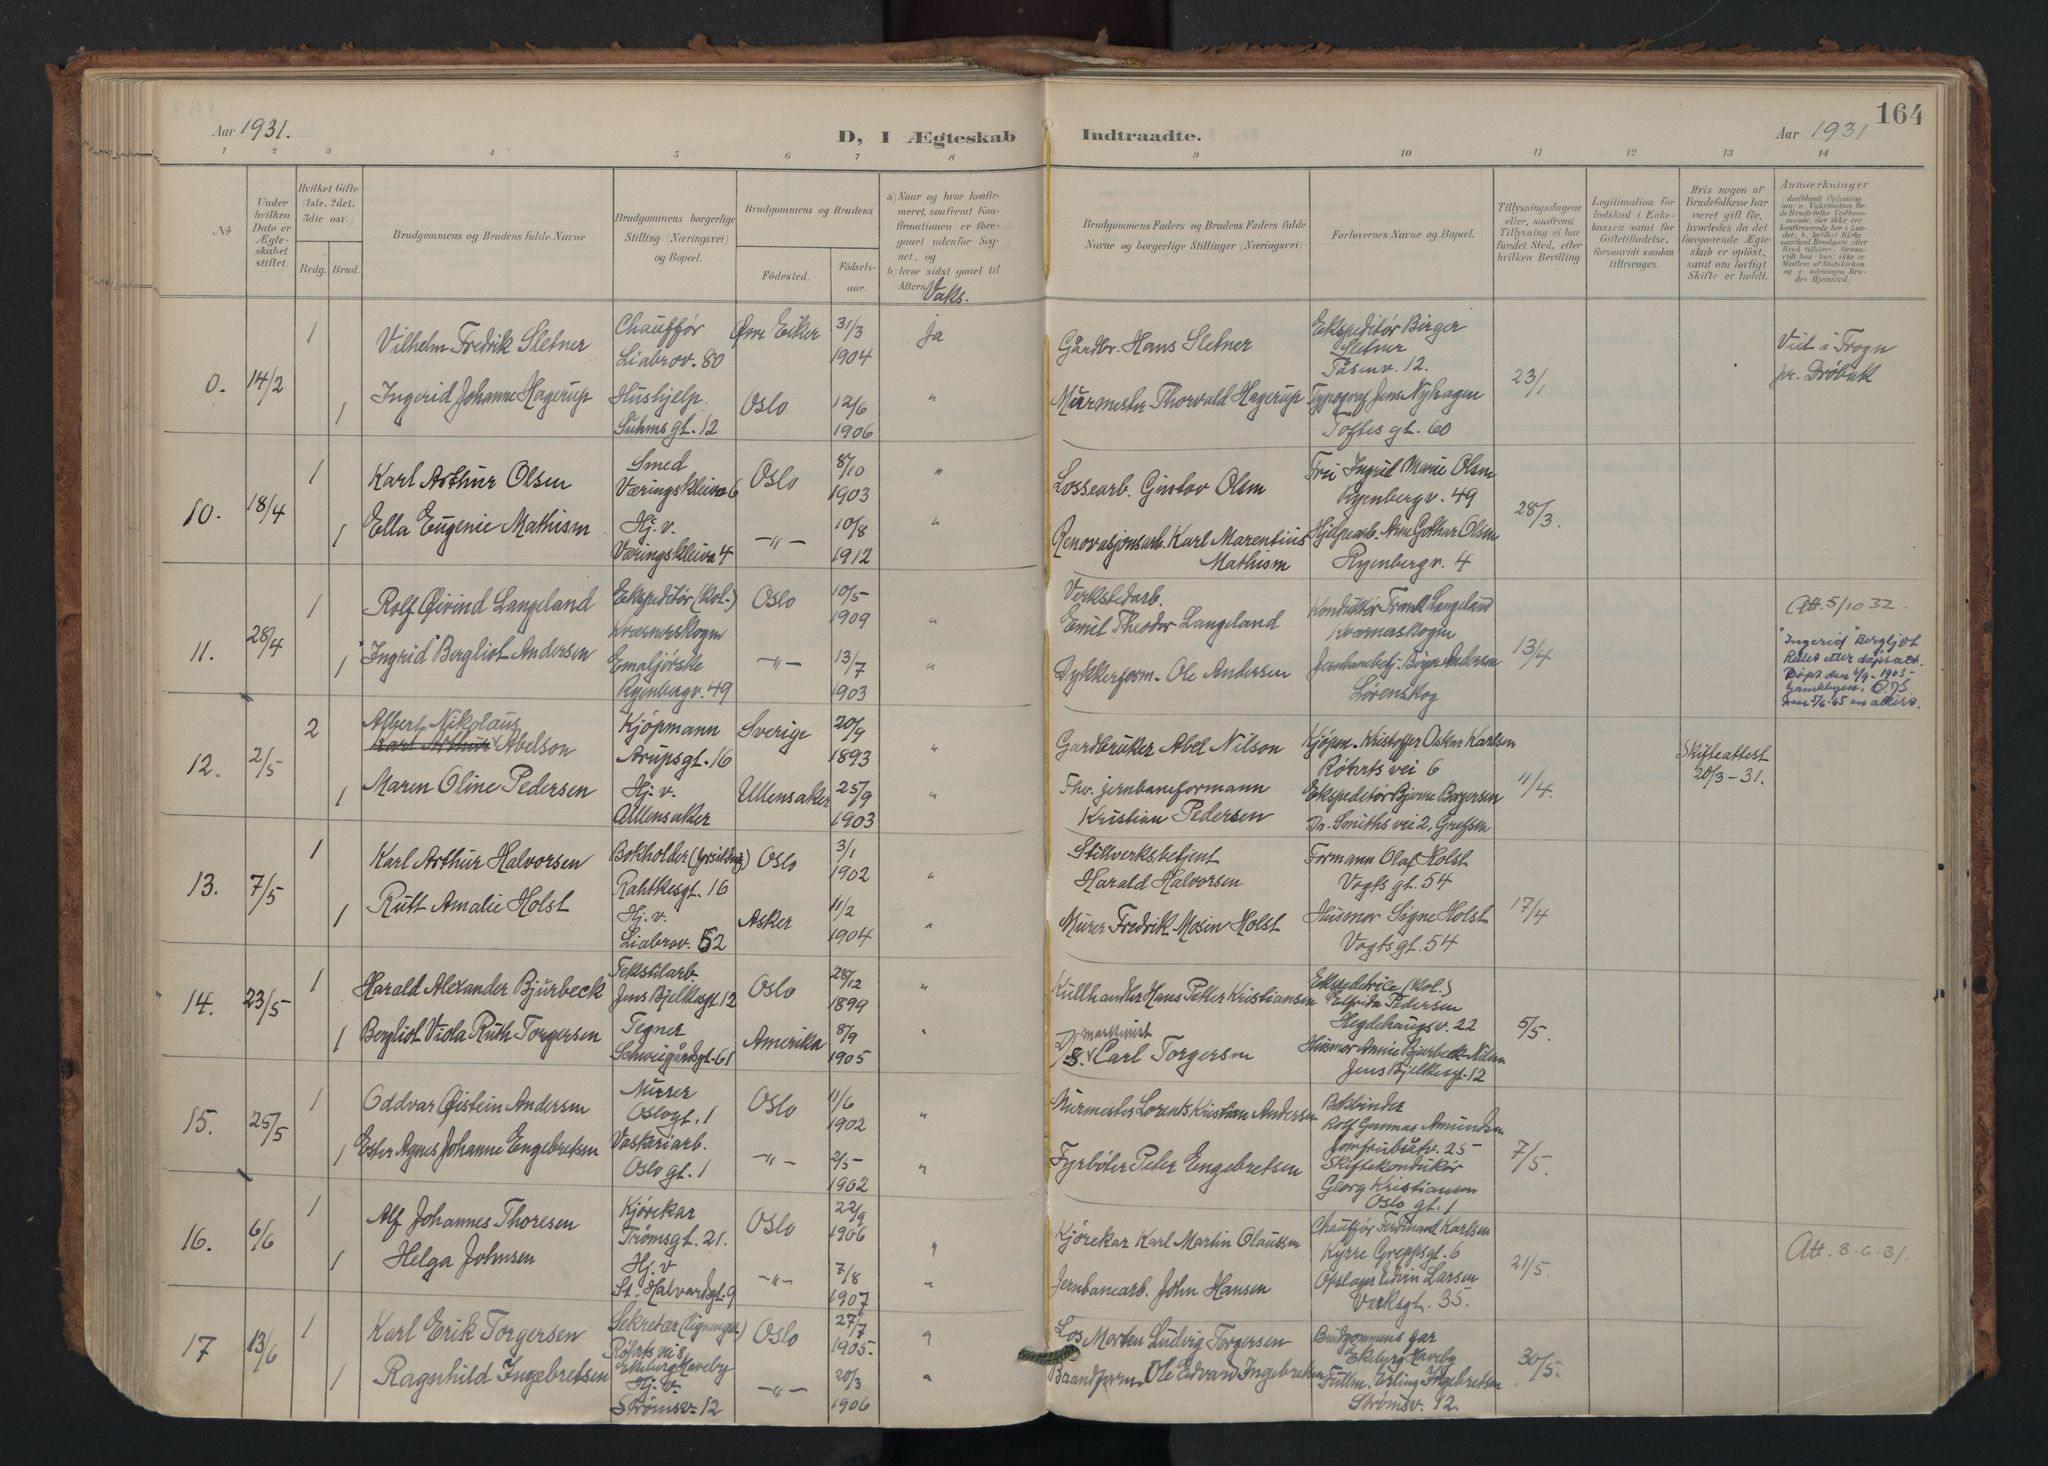 164
Aar 1931.
D, I Ægteskab
Indtraadte.
Aar 1931
1 2 3 4 5 6 7 8 9 10 11 12 13 14
№
Under hvilken Dato er Ægteskabet stiftet.
Hvilket Gifte (1ste, 2det, 3die osv.)
Brdg. Brud.
Brudgommens og Brudens fulde Navne
Brudgommens borgerlige Stilling (Næringsvei) og Bopæl.
Brudgommens og Brudens
Fødested.
Fødselsaar.
a) Naar og hvor konfirmeret, saafremt Konfirmationen er foregaaet udenfor Sognet, og
b) hvor sidst gaaet til Alters.
Vaks.
Brudgommens Faders og Brudens Faders fulde Navne og borgerlige Stillinger (Næringsvei)
Forlovernes Navne og Bopæl.
Tillysningsdagene eller, saafremt Tillysning ei har fundet Sted, efter hvilken Bevilling.
Legitimation for Indskud i Enkekassen samt for Giftetilladelse, forsaavidt saadan tiltrænges.
Hvis nogen af Brudefolkene har været gift før, hvorledes da det foregaaende Ægteskab er opløst, samt om lovligt Skifte er holdt.
Anmærkninger
0. 14/2
1 Vilhelm Fredrik Sletner
Chauffør
Liabrov. 80
Øvre Eiker
31/3
1904
Ja
Gårdbr. Hans Sletner
Ekspeditør Birger
Sletner
Tåsenv. 12.
23/1
Viet i Frogn
pr. Drøbak
1 Ingerid Johanne Hagerup
Hushjelp.
Suhmsgt. 12
Oslo
12/6
1906
"
Murmester Thorvald Hagerup
Typograf Jens Nyhagen
Toftes gt. 60
10. 18/4
1 Karl Arthur Olsen
Smed
Væringskleiva 6
Oslo
8/10
1903
"
Lossearb. Gustav Olsen
Fru Ingrid Marie Olsen
Ryenbergv. 49
28/3.
1 Ella Eugenie Mathisen
Hj. v.
Væringskleiva 4
—"—
10/8
1912
"
Renovasjonsarb. Karl Marentius
Mathisen
Hjelpearb. Arne Gothar Olsen
Ryenbergv. 4
11. 28/4
1 Rolf Øivind Langeland
Ekspeditør (kol.)
Kværnerskogen
Oslo
10/5
1909
"
Verkstedarb.
Emil Theodor Langeland
Konduktør Frank Langeland
Kværnaskogen
13/4
Att. 5/10 32.
1 "Ingrid" Bergliot Andersen
Emaljørske
Ryenbergv. 49
—"—
13/7
1903
"
Dykkerform. Ole Andersen
Lørenskog
"Ingerid" Bergljot
Rettet etter dåpsatt.
12. 2/5
2 Albert Nikolaus
Karl Arthur Abelson
Kjøpmann
Arupsgt. 16
Sverige
20/9
1893
"
Gardbruker Abel Nilson
Kjøpm. Kristoffer Oskar Karlsen
Røhrts vei 6
11/4.
Skifteattest
20/3 - 31.
1 Maren Oline Pedersen
Hj. v.
Ullensaker
Ullensaker
25/9
1903
"
Fhv. jernbaneformann
Kristian Pedersen
Ekspeditør Bjarne Borgersen
Dr. Smiths vei 2, Grefsen
13. 7/5
1 Karl Arthur Halvorsen
Bokholder
Rahtkesgt. 16
Oslo
3/1
1902
"
Stillverksbetjent
Harald Halvorsen
Formann Olaf Holst
Vogts gt. 54
17/4
1 Ruth Amalie Holst
Hj. v.
Liabrov. 52
Asker
11/2
1904
"
Murer Fredrik Mosin Holst
Husmor Signe Holst
Vogtsgt. 54
14. 23/5
1 Harald Alexander Bjurbeck
Tekstilarb
Jens Bjelkesgt. 12
Oslo
28/12
1899
"
Kullhandler Hans Petter Kristiansen
Ekspeditrice (kol.)
Elfrida Pedersen
Hegdehaugsv. 22
5/5.
1 Bergliot Viola Ruth Torgersen
Tegner
Schweigårdsgt. 61
Amerika
8/9
1905
"
maskinist
Carl Torgersen
Husmor Annie Bjurbeck-Nilsen
Jens Bjelkesgt. 12
15. 25/5
1 Oddvar Øistein Andersen
Murer
Oslogt. 1
Oslo
11/6
1902
"
Murmester Lorents Kristian Andersen
Bokbinder
Rolf Gunnar Amundsen
Jomfrubråtv. 25
7/5.
1 Ester Agnes Johanne Engebretsen
Vaskeriarb.
Oslo gt. 1
—"—
2/5
1902
"
Fyrbøter Peter Engebretsen
Skiftekonduktør
Georg Kristiansen
Oslo gt. 1
16. 6/6
1 Alf Johannes Thoresen
Kjørekar
Tromsgt. 21.
Oslo
22/9
1906
"
Kjørekar Karl Martin Olaussen
Chauffør Ferdinand Karlsen
Kyrre Greppsgt. 6
21/5.
Att. 8-6-31.
1 Helga Johnsen
Hj. v
St. Halvardsgt. 9
—"—
7/8
1907
"
Jernbanearb. John Hansen
Opslager Edvin Larsen
Verksgt. 35.
17 13/6
1 Karl Erik Torgersen
Sekretær
Røhrts vei 8
Ekeberg Haveby
Oslo
27/7
1905.
"
Los Morten Ludvig Torgersen
Brudgommens far
Ekeberg Haveby
30/5.
1 Ragnhild Ingebretsen
Hj. v.
Strømsv. 12
—"—
20/3
1906
"
Baandform. Ole Edvard Ingebretsen
Fullm. Erling Ingebretsen
Strømsv. 12.